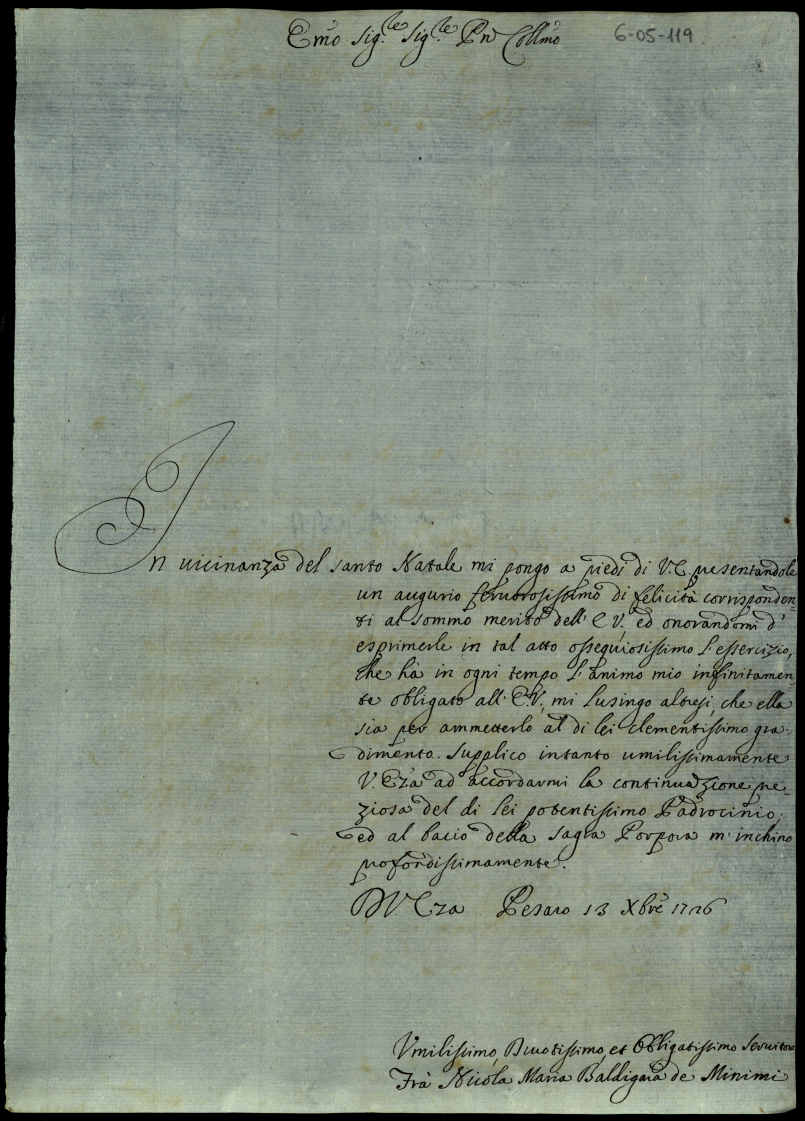 Emo Sig.re Sig.re Pn Collmo
6-05-119
In uicinanza del santo Natale mi pongo a piedi di V.E. presentandole
un augurio feruorosissimo di felicità corrisponden-
ti al sommo merito dell' E.V., ed onorandomi d'
esprimerle in tal atto ossequiosissimo l'essercizio,
che hà in ogni tempo l'animo mio infinitamen-
te obligato all' E.V., mi lusingo altresi, che ella
sia per ammetterlo al di lei clementissimo gra-
dimento. Supplico intanto umilissimamente
V. Eza ad accordarmi la continuazione pre-
ziosa del di lei potentissimo Padrocinio;
ed al bacio della sagra Porpora m'inchino
profondissimamente.
D V. Eza Pesaro 13 Xbre 1726
Vmilissimo, Diuotissimo, et Obligatissimo Seruitore
Frà Nicola Maria Baldigara de Minimi